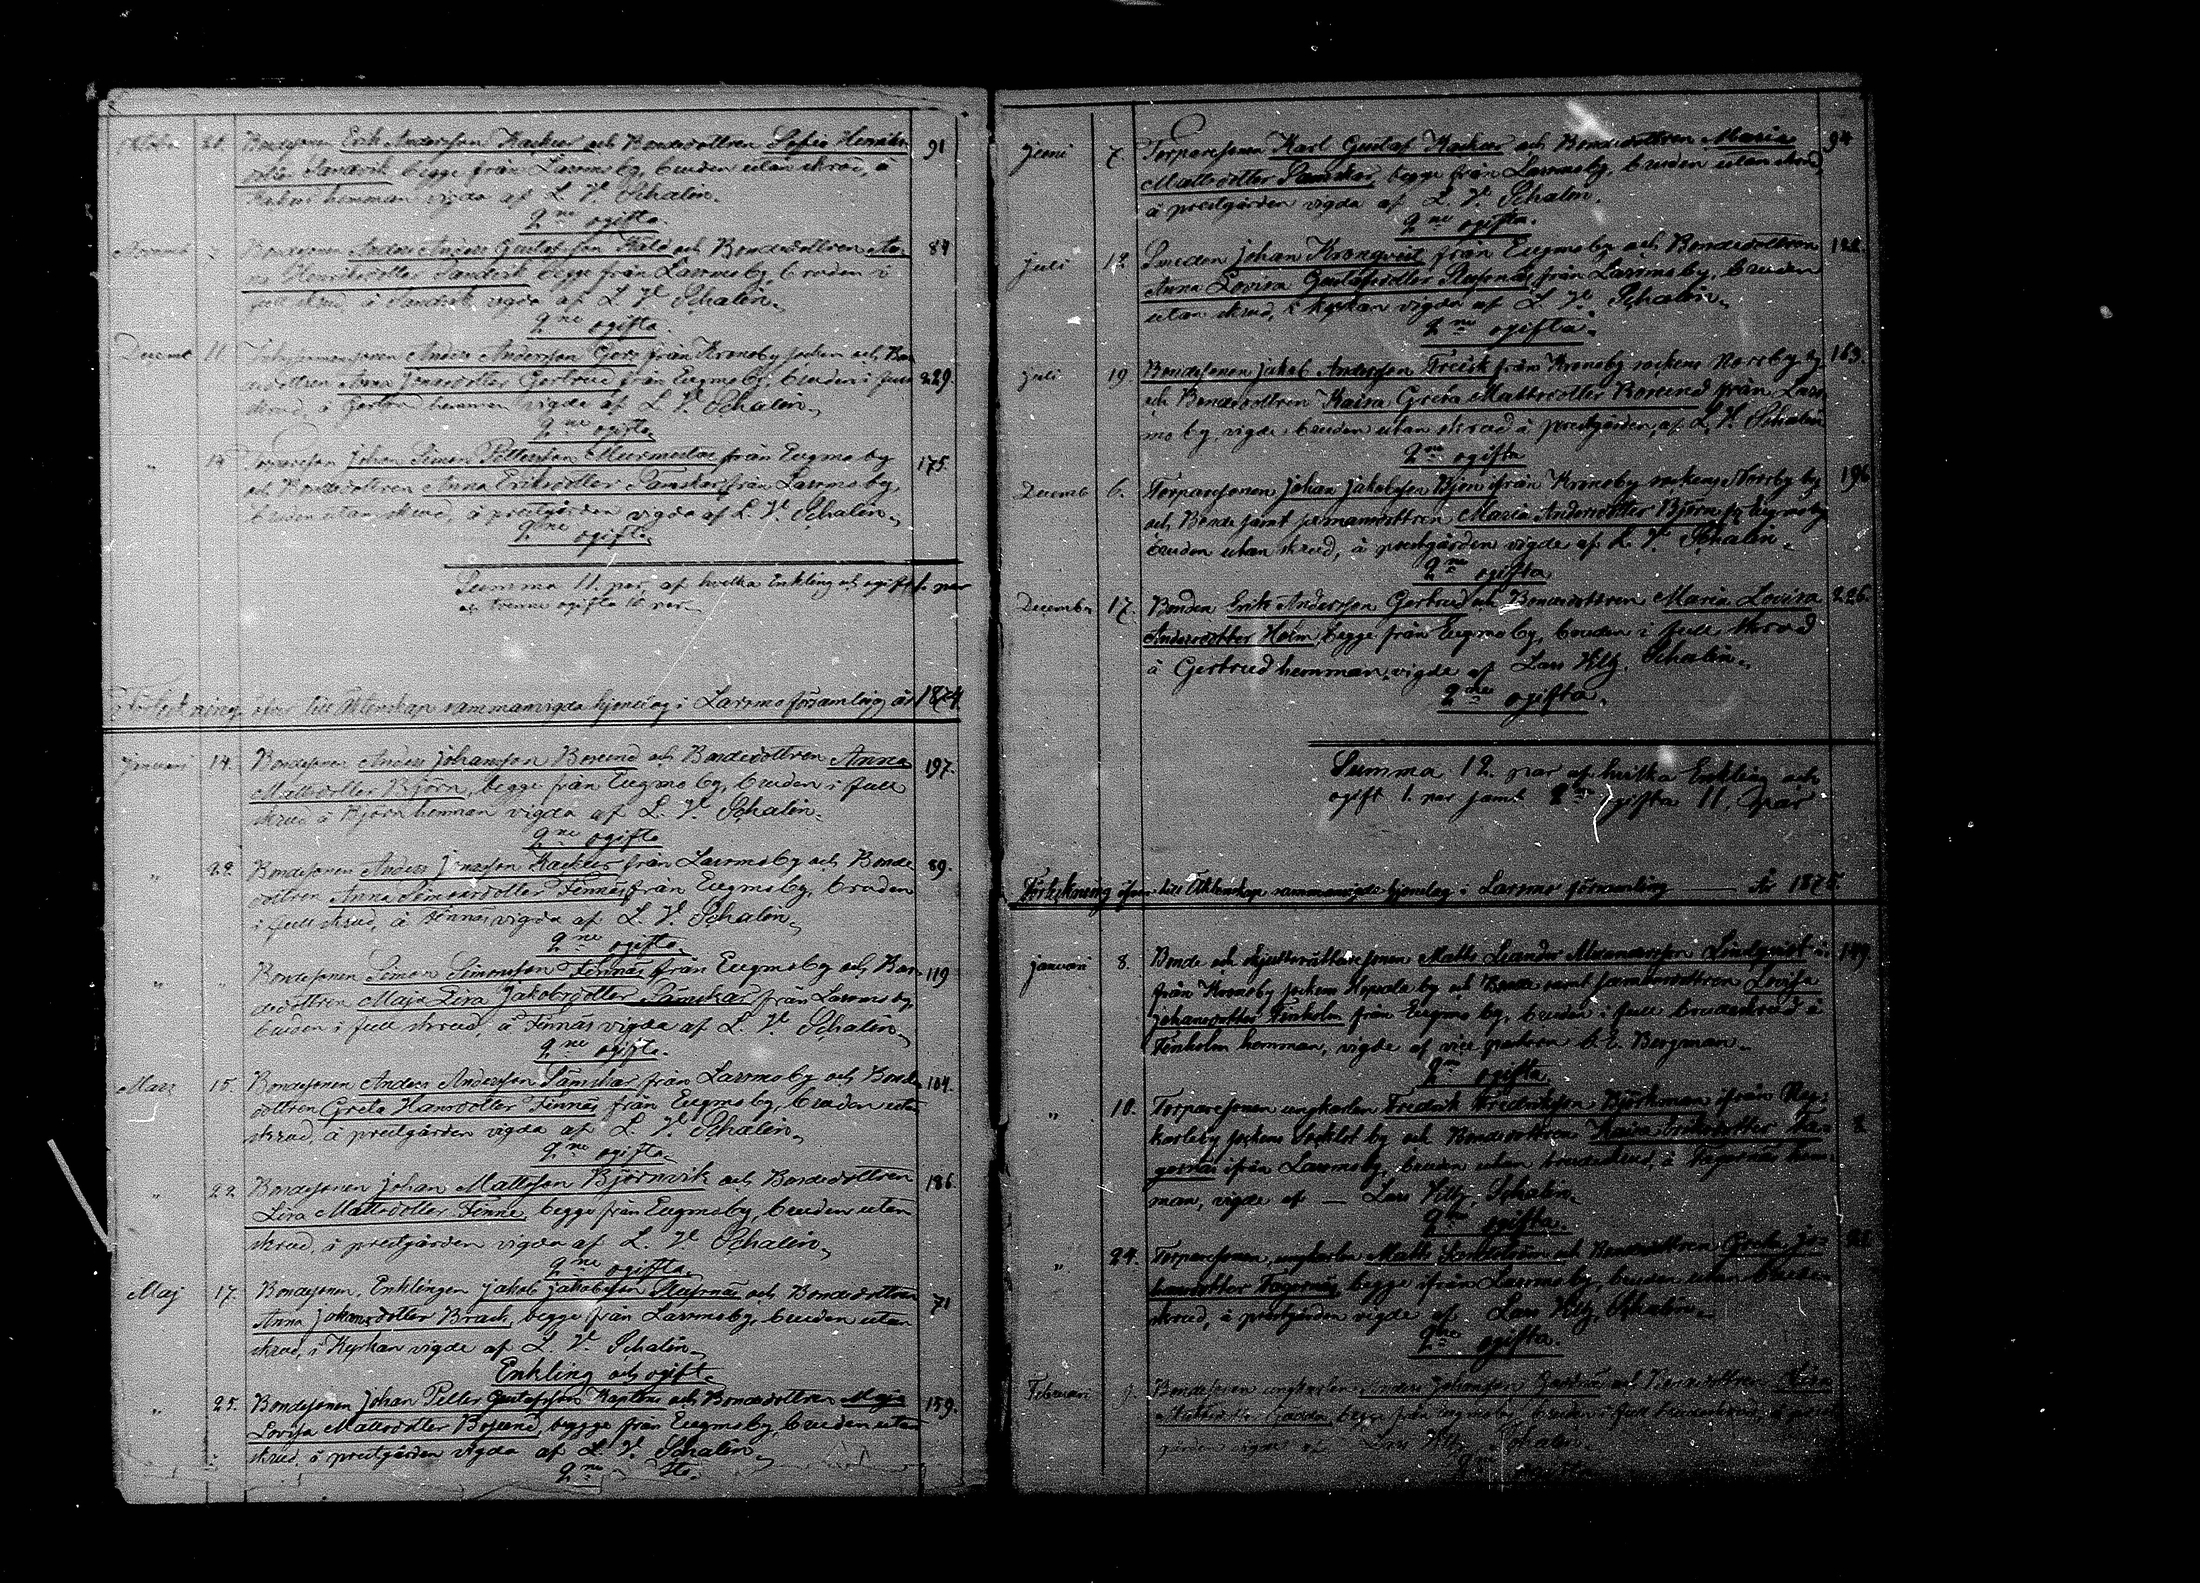 20. Bondesonen Erik Andersson Kackur och Bondedottren Sofia Henriks- 91
dotter Sandvik begge från Larsmo by, bruden utan skrud, å
Kackur hemman vigda af L. V. Schalin.
2ne ogifta.
Novemb Bondesonen Anders Gustafsson och Bondedottren An- 84
na Henriksdotter Sandvik begge från Larsmo by, bruden i
full skrud, å Sandvik vigda af L. V. Schalin.
2ne ogifta.
Decemb 11 Anders Andersson från Kronoby socken och Bon-
dedottren Anna Jonasdotter Gertrud från Eugmo by, bruden i full 229.
skrud, å Gertrud hemman vigde af L. V. Schalin.
2ne ogifta.
" Torpareson Johan Simon Pettersson Murmestar från Eugmo by 175.
och Bondedottren Anna Eriksdotter Sämskar från Larsmo by,
bruden utan skrud, å prestgården vigda af L. V. Schalin.
2ne ogifta.
Summa 11. par, af hvilka Enkling och ogift 1. par
och tvenne ogifta 10 par.
Förteckning öfver till Äktenskap sammanvigda hjonelag i Larsmo församling år 1874.
Januari 14. Bondesonen Anders Johansson Bosund och Bondedottren Anna 197.
Mattsdotter Björn, begge från Eugmo by, bruden i full
skrud å Björn hemman vigda af L. V. Schalin.
2ne ogifta
" 22. Bondesonen Anders Jonasson Kackur från Larsmo by och Bonde- 89.
dottren Anna Simonsdotter Finnäs från Eugmo by, bruden
i full skrud, å Finnäs vigda af L. V. Schalin.
2ne ogifta.
" " Bondesonen Simon Simonsson Finnäs från Eugmo by och Bon- 119
dedottren Maja Lisa Jakobsdotter Sämskar från Larsmo by
bruden i full skrud, å Finnäs vigda af L. V. Schalin.
2ne ogifta.
Mars 15. Bondesonen Anders Andersson Sämskar från Larsmo by och Bonde- 104.
dottren Greta Hansdotter Finnäs från Eugmo by, bruden utan
skrud, å prestgården vigda af L. V. Schalin.
2ne ogifta.
" 22. Bondesonen Johan Mattsson Björnvik och Bondedottren 186.
Lisa Mattsdotter Finne, begge från Eugmo by, bruden utan
skrud, å prestgården vigda af L. V. Schalin.
2ne ogifta.
Maj 17. Bondesonen, Enklingen Jakob Jakobsson Näsnäs och Bondedottren 71
Anna Johansdotter Brask, begge från Larsmo by, bruden utan
skrud, i Kyrkan vigde af L. V. Schalin.
Enkling och ogift.
" 25. Bondesonen Johan Petter Gustafsson Kaptens och Bondedottren Maja 159.
Lovisa Mattsdotter Bosund, begge från Eugmo by, bruden utan
skrud, å prestgården vigda af L. V. Schalin.
2ne
Juni 7. Torparesonen Karl Gustaf Kackur och Bondedottren Maria 94
Mattsdotter Sämskar, begge från Larsmo by, bruden utan skrud,
å prestgården vigda af L. V. Schalin.
2ne ogifta.
Juli 12 Smeden Johan Kronqvist från Eugmo by och Bondedottren 122.
Anna Lovisa Gustafsdotter från Larsmo by, bruden
utan skrud, i kyrkan vigda af L. V. Schalin.
2ne ogifta.
Juli 19 Bondesonen Jakob Andersson från Kronoby sockens Norrby by 163.
och Bondedottren Kaisa Greta Mattsdotter Bosund från Lars-
mo by, vigde, bruden utan skrud å prestgården, af L. V. Schalin
2ne ogifta
Decemb 6. Torparesonen Johan Jakobsson Björn ifrån Kronoby sockens Norrby by 196
och Bonde samt sexmansdottren Maria Andersdotter Björn fr. Eugmo by
bruden utan skrud, å prestgården vigde af L. V. Schalin.
2ne ogifta
December 17. Bonden Erik Andersson Gertrud och Bondedottren Maria Lovisa 226.
Andersdotter Holm, begge från Eugmo by, bruden i full skrud
å Gertrud hemman, vigde af Lars Vilh. Schalin.
2ne ogifta.
Summa 12. par af hvilka Enkling och
ogift 1. par samt 2ne ogifta 11. par
Förteckning öfver till Äktenskap sammanvigde hjonelag i Larsmo församling — År 1875.
Januari 8. Bonde och skjutsrättare sonen Matts Leander Lindqvist 149
från Kronoby sockens Hopsala by och Bonde samt sexmansdottren Lovisa
Johansdotter Finholm från Eugmo by, bruden i full brudskrud å
Finholm hemman, vigde af vice pastor Bergman.
2ne ogifta.
" 10. Torparesonen ungkarlen Fredrik Fredriksson Björkman ifrån Ny- 8.
karleby sockens Socklot by och Bondedottren Kaisa Eriksdotter Fa-
gernäs ifrån Larsmo by, bruden utan brudskrud, å Fagernäs hem-
man, vigde af — Lars Vilh. Schalin.
2ne ogifta.
" 24. Torparesonen, ungkarlen Matts och Bondedottren Greta Jo-
hansdotter Fagernäs begge ifrån Larsmo by, bruden utan brud-
skrud, å prestgården vigde af Lars Vilh. Schalin.
2ne ogifta.
Februari Bondesonen ungkarlen Anders Johansson och Bondedottren
begge från Eugmo by, bruden i full brudskrud,
vigde af Lars Vilh. Schalin.
2ne ogifta